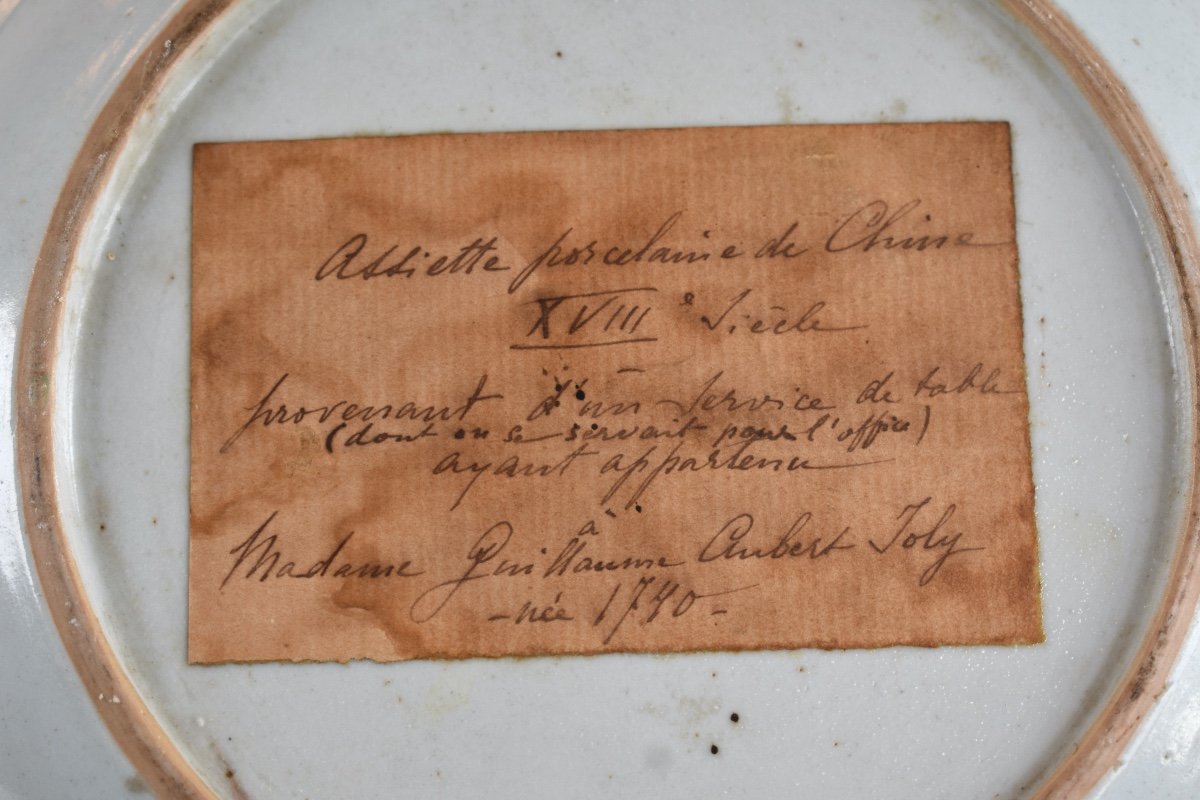 Assiette porcelaine de Chine
XVIII e Siècle
provenant d'un service de table
(dont on se servait pour l'office)
ayant appartenu
à
Madame Guillaume Aubert Joly
- née 1740 -